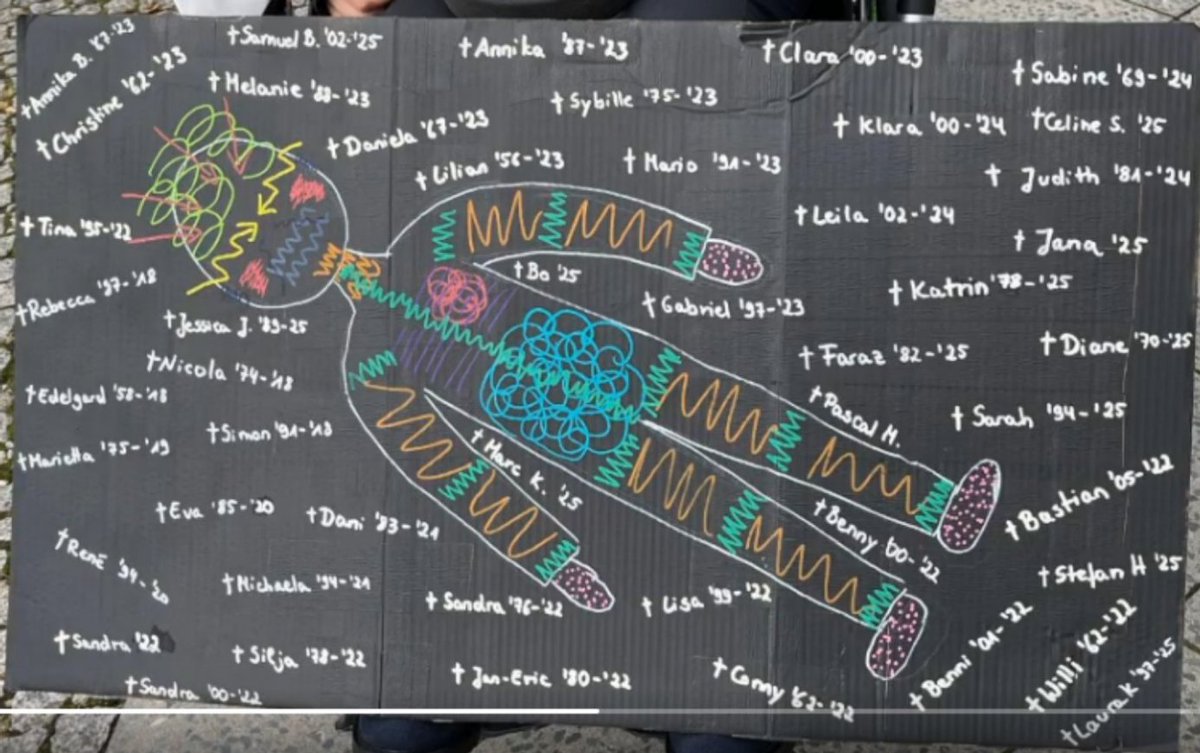 †Annika B. '87-'23
†Samuel B. '02-'25
†Annika '87-'23
†Clara '00-'23
†Sabine '69-'24
†Christine '62-'23
†Melanie '88-'23
†Sybille '75-'23
†Klara '00-'24
†Celine S. '25
†Daniela '67-'23
†Lilian '56-'23
†Mario '91-'23
†Judith '81-'24
†Tina '95-'22
†Leila '02-'24
†Jana '25
†Rebecca '97-'18
†Bo '25
†Gabriel '97-'23
†Katrin '78-'25
†Jessica J. '89-25
†Nicola '74-'18
†Faraz '82-'25
†Diane '70-'25
†Edelgard '58-'18
†Pascal M.
†Sarah '94-'25
†Marietta '75-'19
†Simon '91-'18
†Marc K. '25
†Bastian '05-'22
†Eva '85-'20
†Dani '83-'21
†Benny '00-'22
†René '94-'20
†Michaela '94-'21
†Sandra '76-'22
†Lisa '99-'22
†Stefan H '25
†Sandra '22
†Silja '78-'22
†Jan-Eric '80-'22
†Conny '62-'22
†Benni '01-'22
†Willi '62-'22
†Sandra '00-'22
†Laura K '97-'25